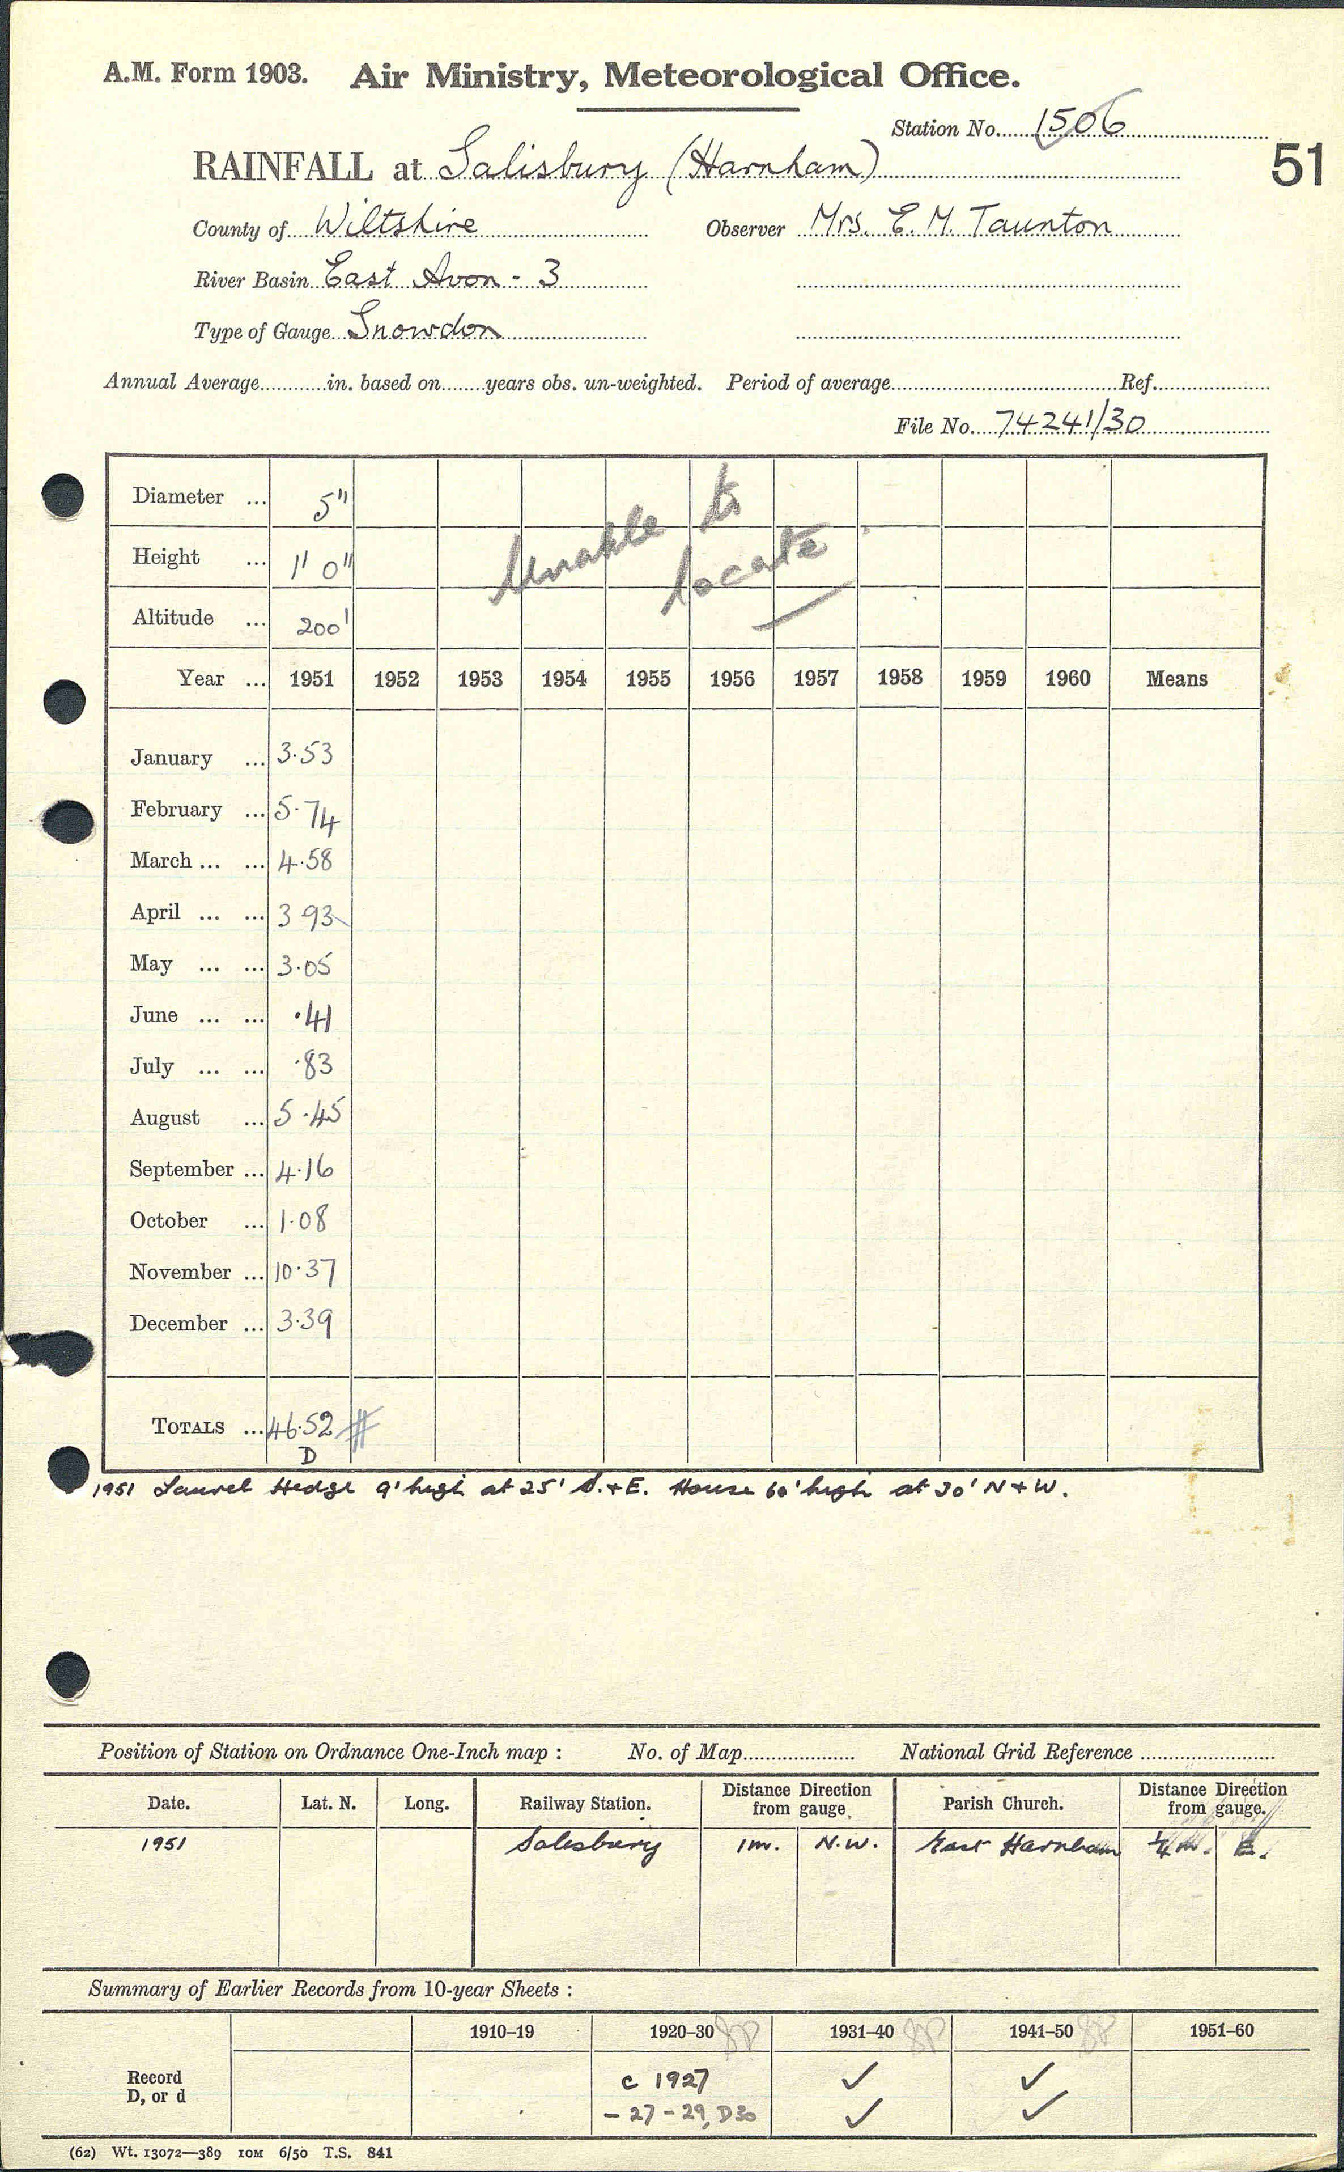 A.M. Form 1903. Air Ministry, Meteorological Office.
Station No. 1506
51
RAINFALL at Salisbury (Harnham)
County of Wiltshire Observer Mrs. E. M. Taunton
River Basin East Avon - 3
Type of Gauge Snowdon
Annual Average in. based on years obs. un-weighted. Period of average Ref.
File No. 74241/30
Diameter ... 5"
Unable to
locate
Height ... 1' 0"
Altitude ... 200'
Year ... 1951 1952 1953 1954 1955 1956 1957 1958 1959 1960 Means
January ... 3.53
February ... 5.74
March ... ... 4.58
April ... ... 3 93
May ... ... 3.05
June ... ... .41
July ... ... .83
August ... 5.45
September ... 4.16
October ... 1.08
November ... 10.37
December ... 3.39
TOTALS ... 46.52 #
D
1951 Laurel Hedge 9' high at 25' S.+E. House 60' high at 30' N+W.
Position of Station on Ordnance One-Inch map : No. of Map National Grid Reference
Date. Lat. N. Long. Railway Station. Distance Direction from gauge. Parish Church. Distance Direction from gauge.
1951 Salisbury 1m. N.W. East Harnham 1/4 m. E.
Summary of Earlier Records from 10-year Sheets :
1910–19 1920–30 1931–40 1941–50 1951–60
Record c 1927 ✓ ✓
D, or d - 27 - 29, D30 ✓ ✓
(62) Wt. 13072—389 10M 6/50 T.S. 841